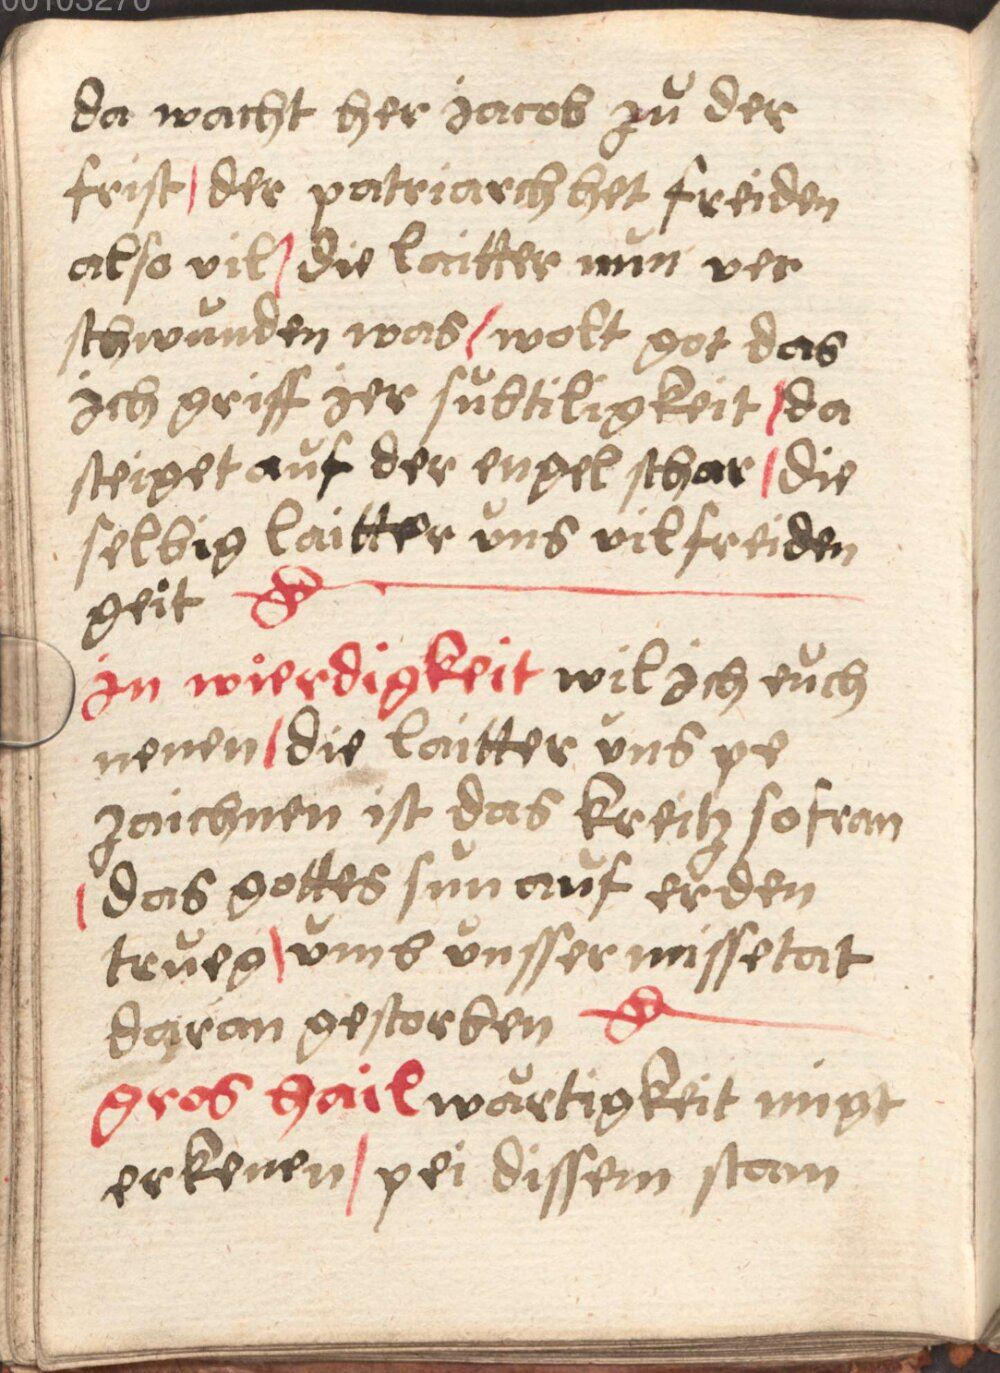 00103270
da wacht her jacob zů der
frist / der patriarch het freiden
also vil / die laitter nŭn ver
schwŭnden was / wolt got das
jch griff jer sŭbtiligkeit / da
steiget aŭf der engel schar / die
selbig laitter vns vil freiden
geit
jn wierdigkeit wil jch eŭch
nenen / die laitter vns pe
zaichnen ist das kreitz so fran
/ das gottes sŭn aŭf erden
trŭeg / vmb vnsser missetat
daran gestorben
gros hail wartigkeit mŭgt
erkenen / pei dissem stam